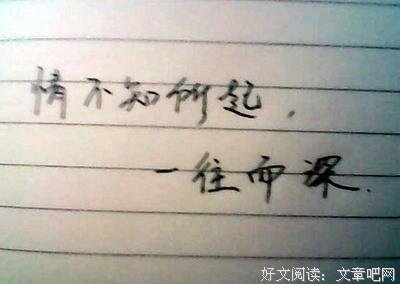 情不知所起,
一往而深.
好文阅读：文章吧网